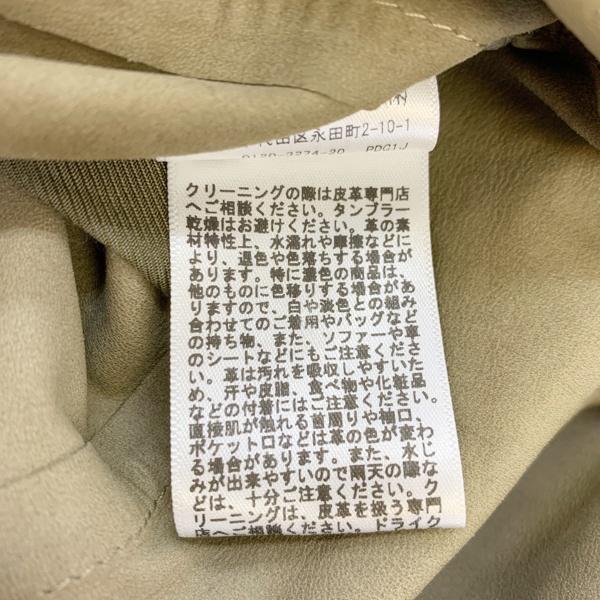 代田区永田町2-10-1
PDG1J
クリーニングの際は皮革専門店
へご相談ください。タンブラー
乾燥はお避けください。革の素
材特性上、水濡れや摩擦などに
より、退色や色落ちする場合が
あります。特に濃色の商品は、
他のものに色移りする場合があ
りますので、白や淡色との組み
合わせてのご着用やバッグなど
の持ち物、また、ソファーや車
のシートなどにもご注意くださ
い。革は汚れを吸収しやすいた
め、汗や皮脂、食べ物や化粧品
などの付着にはご注意ください。
直接肌が触れる首周りや袖口、
ポケット口などは革の色が変わ
る場合があります。また、水じ
みが出来やすいので雨天の際な
どは、十分ご注意ください。ク
リーニングは、皮革を扱う専門
店へご相談ください。ドライク